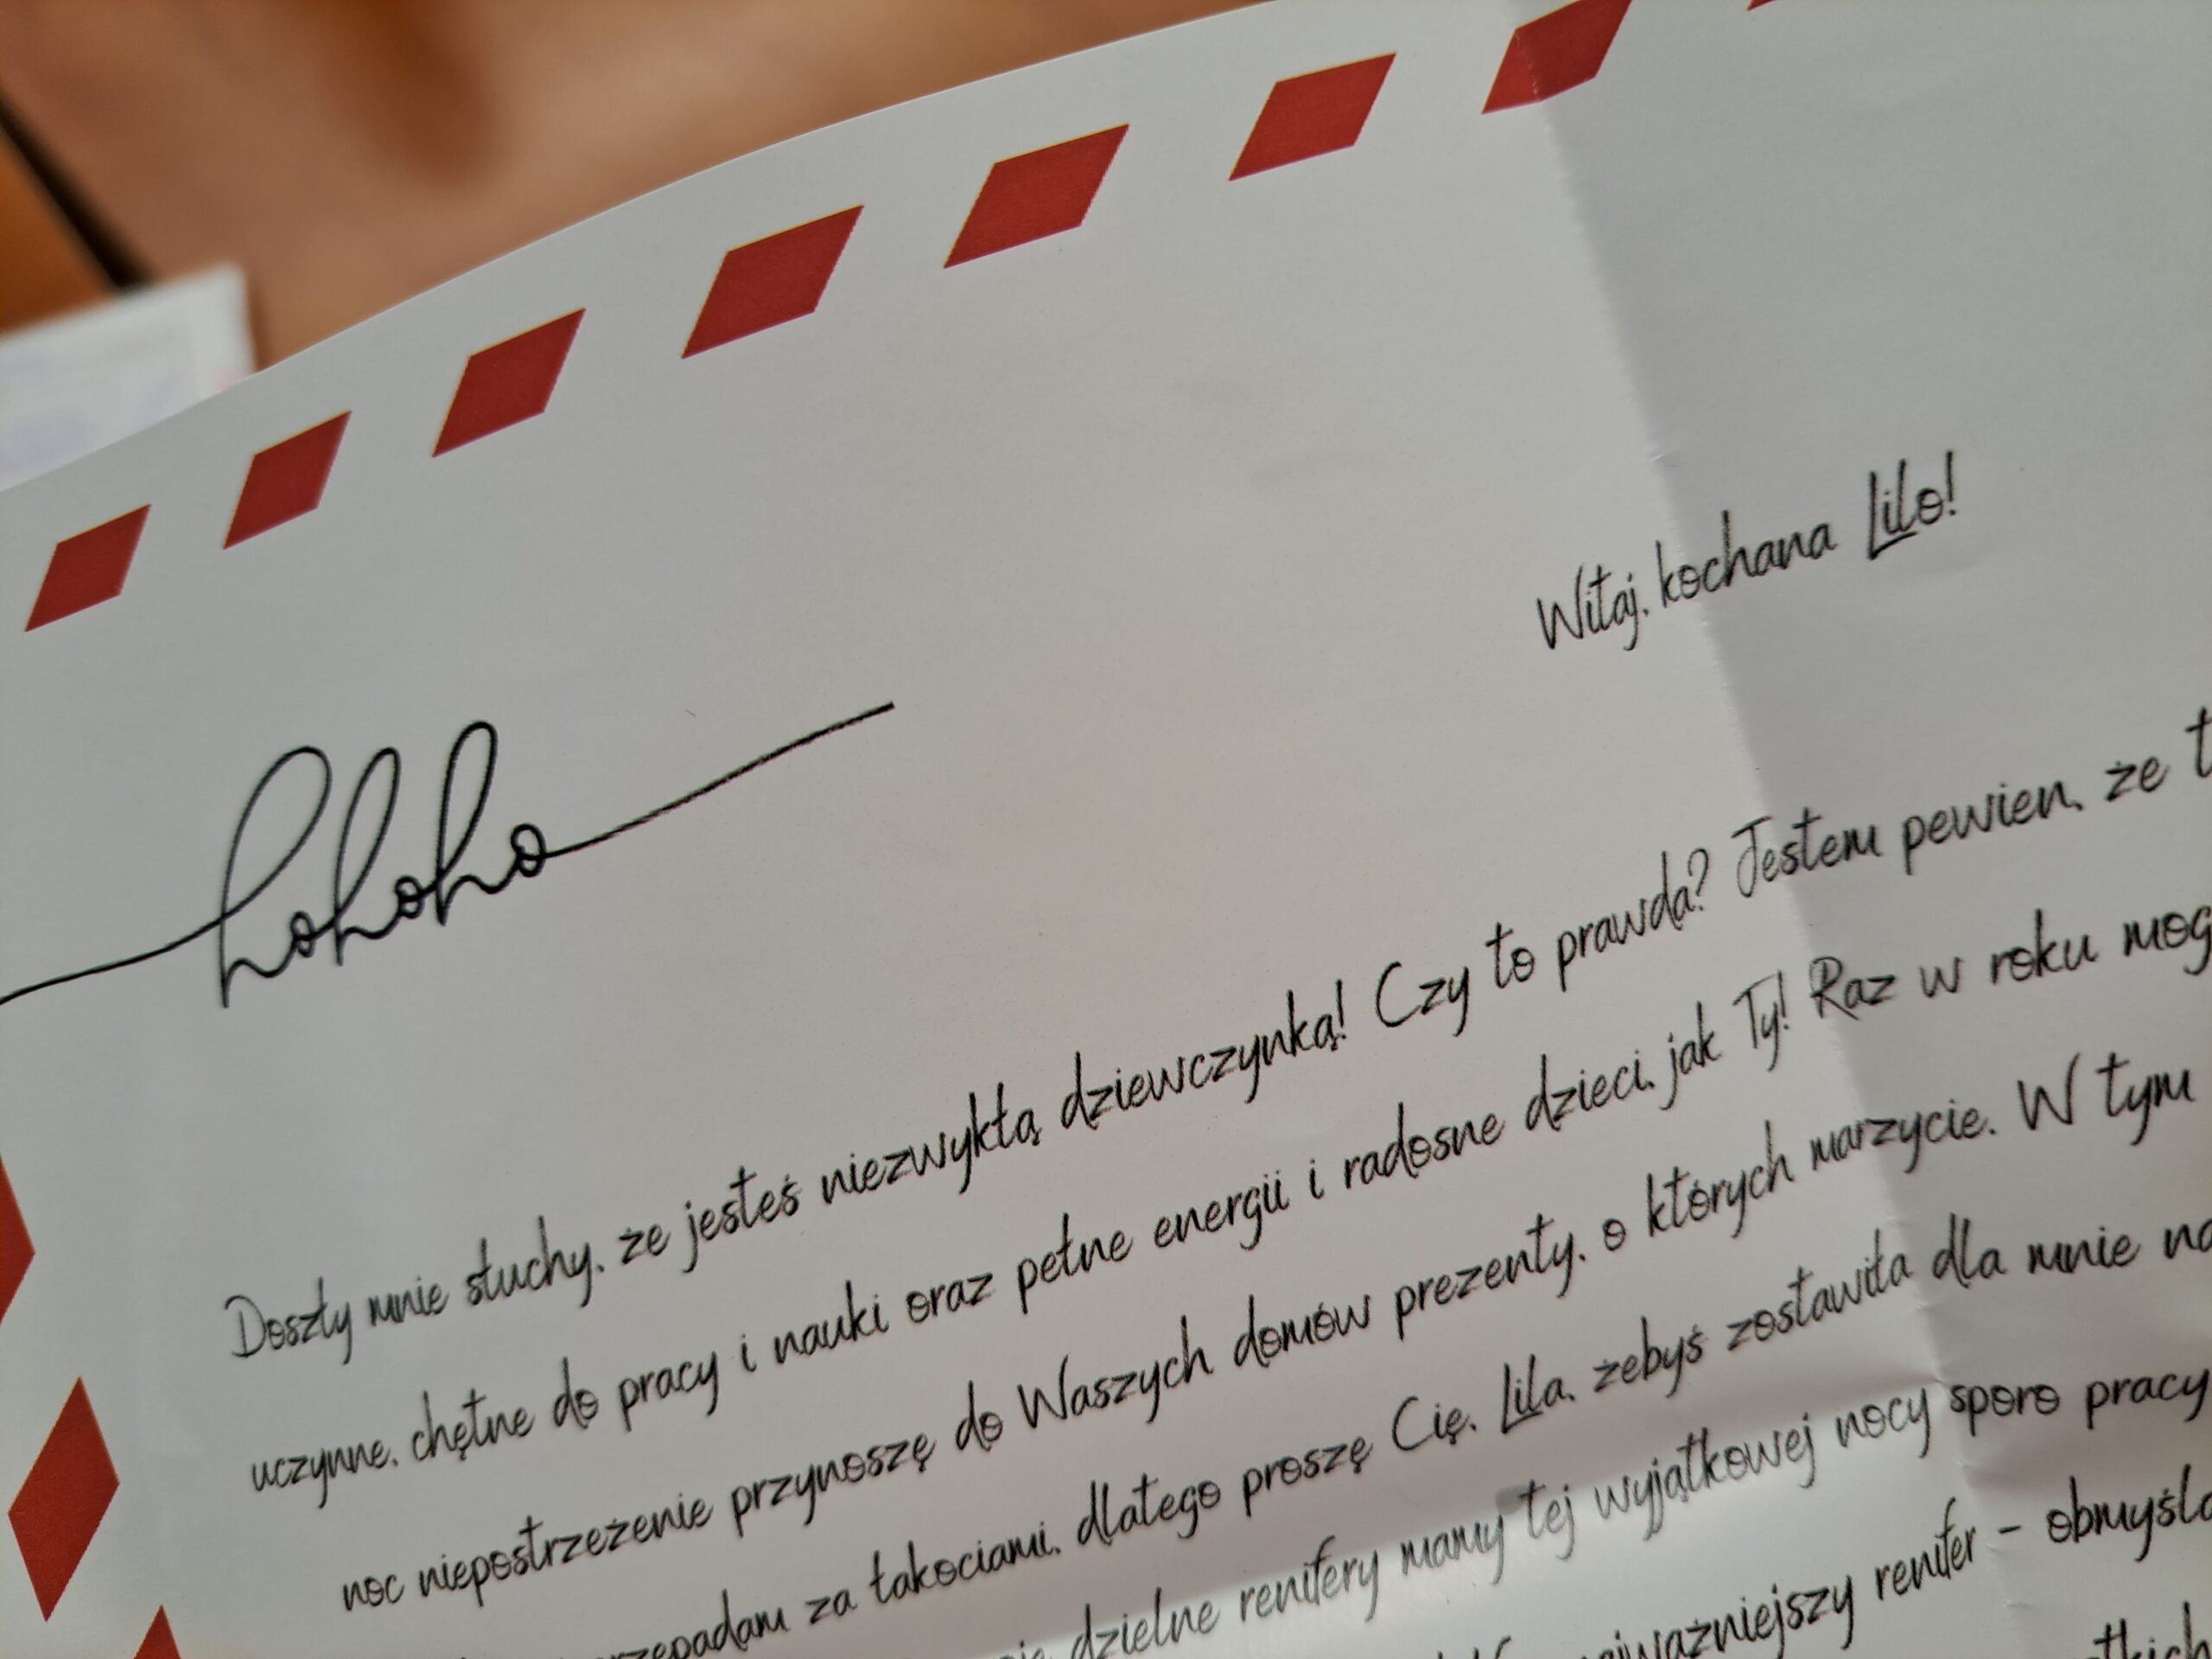 Witaj, kochana Lilo!
hohoho
Doszły mnie słuchy, że jesteś niezwykłą dziewczynką! Czy to prawda? Jestem pewien, że
uczynne, chętne do pracy i nauki oraz pełne energii i radosne dzieci, jak Ty! Raz w roku
noc niepostrzeżenie przynoszę do Waszych domów prezenty, o których marzycie. W tym
za łakociami, dlatego proszę Cię, Lila, żebyś zostawiła dla mnie
dzielne renifery mamy tej wyjątkowej nocy sporo pracy
renifer -